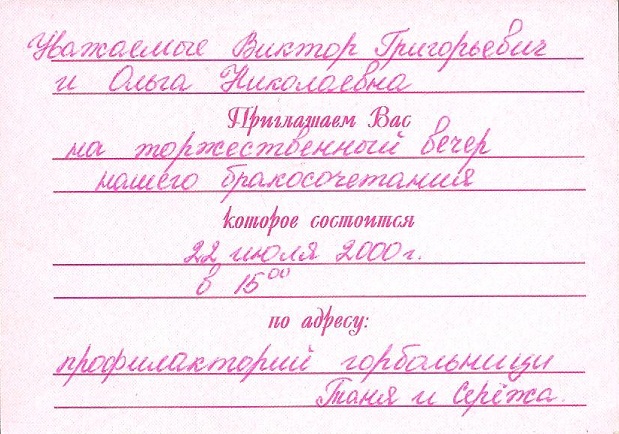 Уважаемые Виктор Григорьевич
и Ольга Николаевна
Приглашаем Вас
на торжественный вечер
нашего бракосочетания
которое состоится
22 июля 2000 г.
в 15⁰⁰
по адресу:
профилакторий горбольницы
Таня и Серёжа.